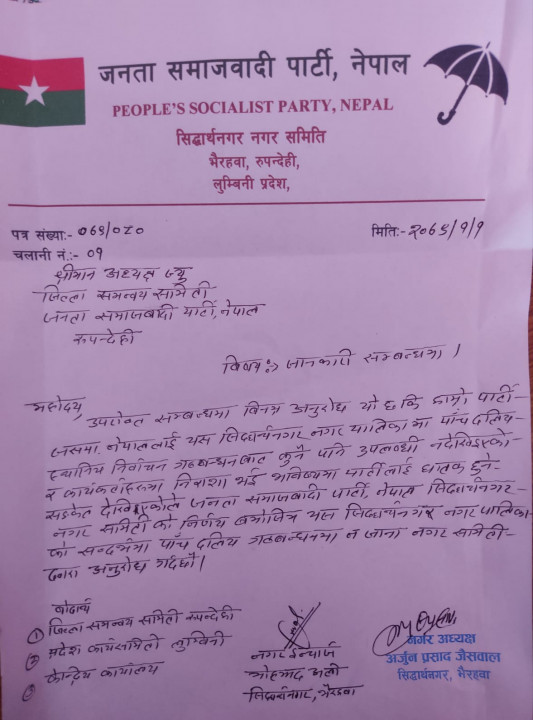 जनता समाजवादी पार्टी, नेपाल
PEOPLE'S SOCIALIST PARTY, NEPAL
सिद्धार्थनगर नगर समिति
भैरहवा, रुपन्देही,
लुम्बिनी प्रदेश,
पत्र संख्या:-
मिति:-
चलानी नं.:- ०१
श्रीमान अध्यक्ष ज्यु
जिल्ला समन्वय समिती
जनता समाजवादी पार्टी, नेपाल
रुपन्देही
विषय :- जानकारी सम्बन्धमा ।
महोदय,
उपरोक्त सम्बन्धमा विनम्र अनुरोध यो छ कि हाम्रो पार्टी-
जसपा, नेपाललाई यस सिद्धार्थनगर नगर पालिका मा पाँच दलिय-
स्थानिय निर्वाचन गठबन्धनबाट कुनै पनि उपलब्धी नदेखिएको-
र कार्यकर्ताहरुमा निराशा भई भविष्यमा पार्टीलाई घातक हुने-
सङ्केत देखिएकोले जनता समाजवादी पार्टी, नेपाल सिद्धार्थनगर-
नगर समिती को निर्णय बमोजिम यस सिद्धार्थनगर नगर पालिका-
को सन्दर्भमा पाँच दलिय गठबन्धनमा न जाना नगर समिती-
द्वारा अनुरोध गर्दछौ ।
बोधार्थ
① जिल्ला समन्वय समिती रुपन्देही
② प्रदेश कार्यसमिती लुम्बिनी
③ केन्द्रिय कार्यालय
नगर ईन्चार्ज
मोहमद अली
सिद्धार्थनगर, भैरहवा
नगर अध्यक्ष
अर्जुन प्रसाद जैसवाल
सिद्धार्थनगर, भैरहवा